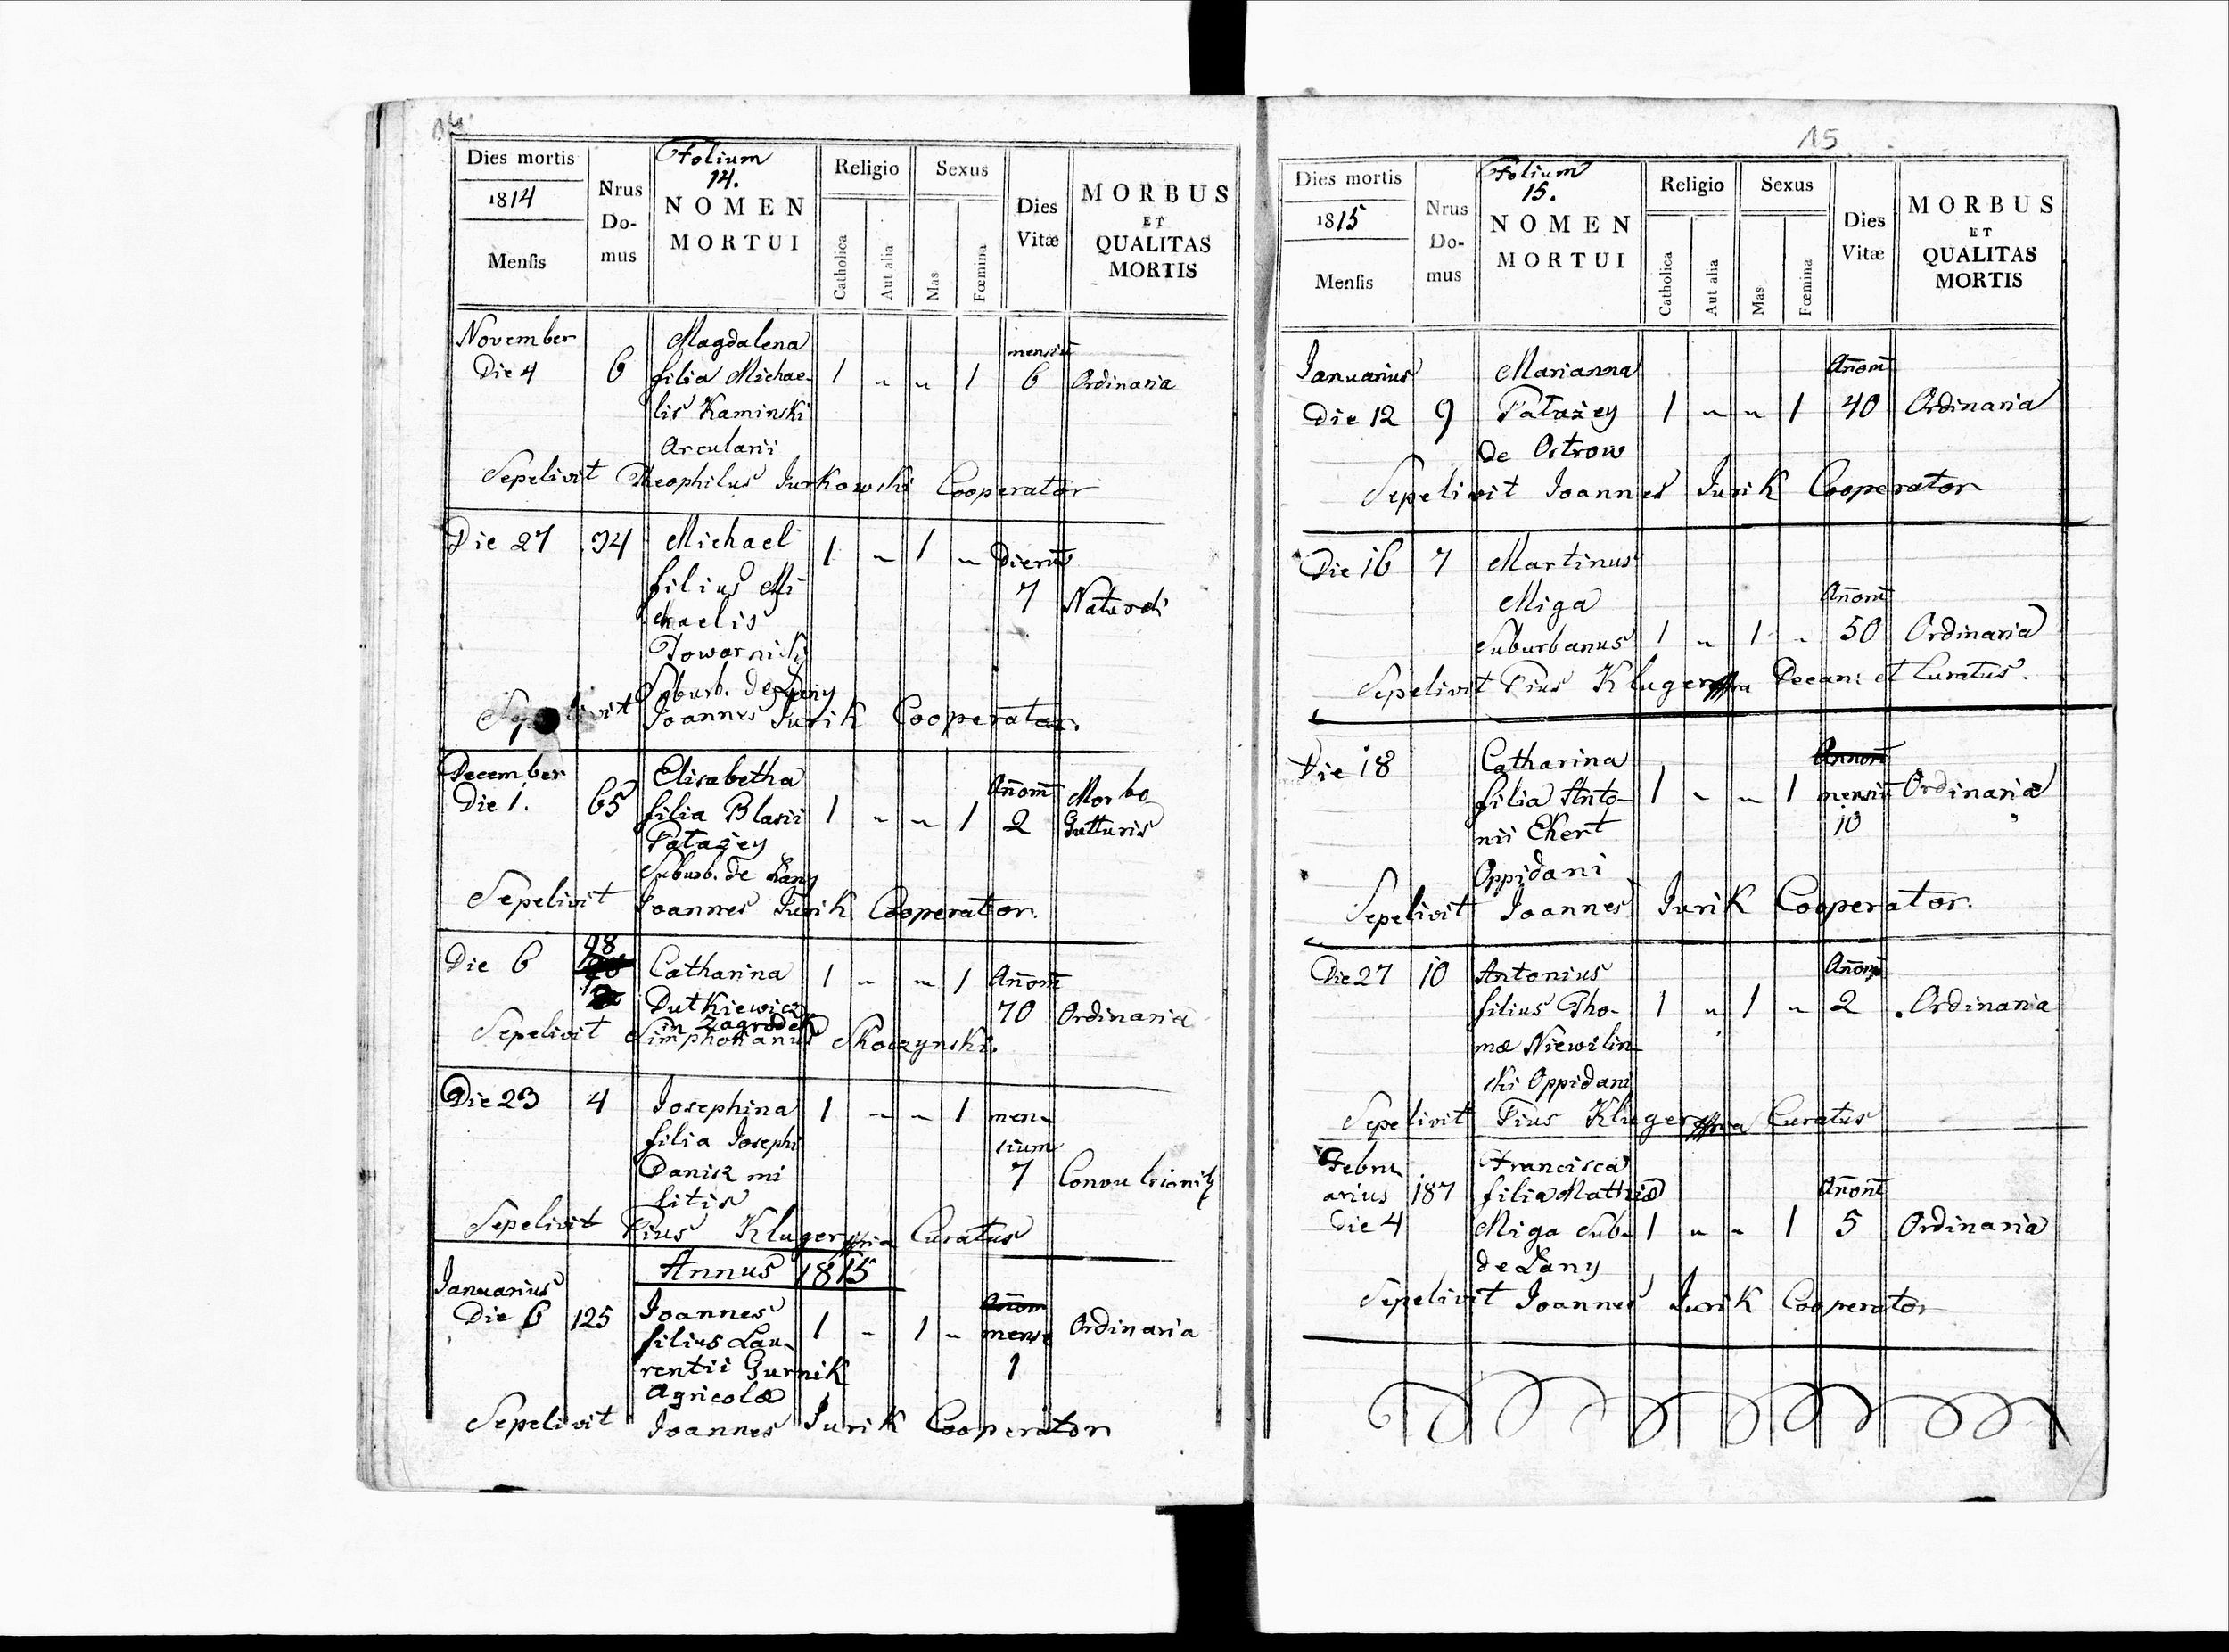 14
Dies mortis
1814
Mensis
Nrus
Do-
mus
Folium
14.
NOMEN
MORTUI
Religio
Catholica
Aut alia
Sexus
Mas
Fœmina
Dies
Vitæ
MORBUS
ET
QUALITAS
MORTIS
November
Die 4
6
Magdalena
filia Michae-
lis Kaminski
Arcularii
1 " " 1
mensiū
6
Ordinaria
Sepelivit Theophilus Jurkowski Cooperator
Die 27
94
Michael
filius Mi
chaelis
Towarnicki
Suburb. de Łany
1 " 1 "
Dierū
7
Sepelivit Joannes Jurik Cooperator.
December
Die 1.
65
Elisabetha
filia Blasii
Patażey
Suburb. de Łany
1 " " 1
Añom̄
2
Morbo
Gutturis
Sepelivit Joannes Jurik Cooperator.
Die 6
98
Catharina
Dutkiewicz
in Zagrodek
1 " " 1
Añom̄
70
Ordinaria
Sepelivit Simphorianus Skoczynski.
Die 23
4
Josephina
filia Josephi
Danisz mi
litis
1 " " 1
men-
sium
7
Sepelivit Pius Kluger Curatus
Annus 1815
Januarius
Die 6
125
Joannes
filius Lau-
rentii Gurnik
Agricolæ
1 " 1 "
mense
1
Ordinaria
Sepelivit Joannes Jurik Cooperator
15
Dies mortis
1815
Mensis
Nrus
Do-
mus
Folium
15.
NOMEN
MORTUI
Religio
Catholica
Aut alia
Sexus
Mas
Fœmina
Dies
Vitæ
MORBUS
ET
QUALITAS
MORTIS
Januarius
Die 12
9
Marianna
Patażey
de Ostrow
1 " " 1
Añom̄
40
Ordinaria
Sepelivit Joannes Jurik Cooperator
Die 16
7
Martinus
Miga
Suburbanus
1 " 1 "
Añom̄
50
Ordinaria
Sepelivit Pius Kluger Decan: et Curatus.
Die 18
Catharina
filia Anto-
nii Ekert
Oppidani
1 " " 1
Annom̄
mensiū
10
Ordinaria
Sepelivit Joannes Jurik Cooperator.
Die 27
10
Antonius
filius Tho-
mæ Niewilin-
ski Oppidani
1 " 1 "
Añom̄
2
Ordinaria
Sepelivit Pius Kluger Curatus
Febru
arius
Die 4
187
Francisca
filia Mathiæ
Miga Sub.
de Łany
1 " " 1
Añom̄
5
Ordinaria
Sepelivit Joannes Jurik Cooperator